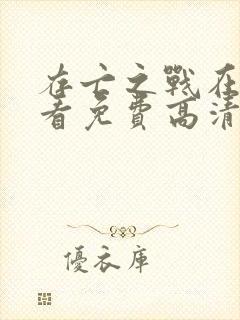 存亡之戰在
看免費高清
優衣庫